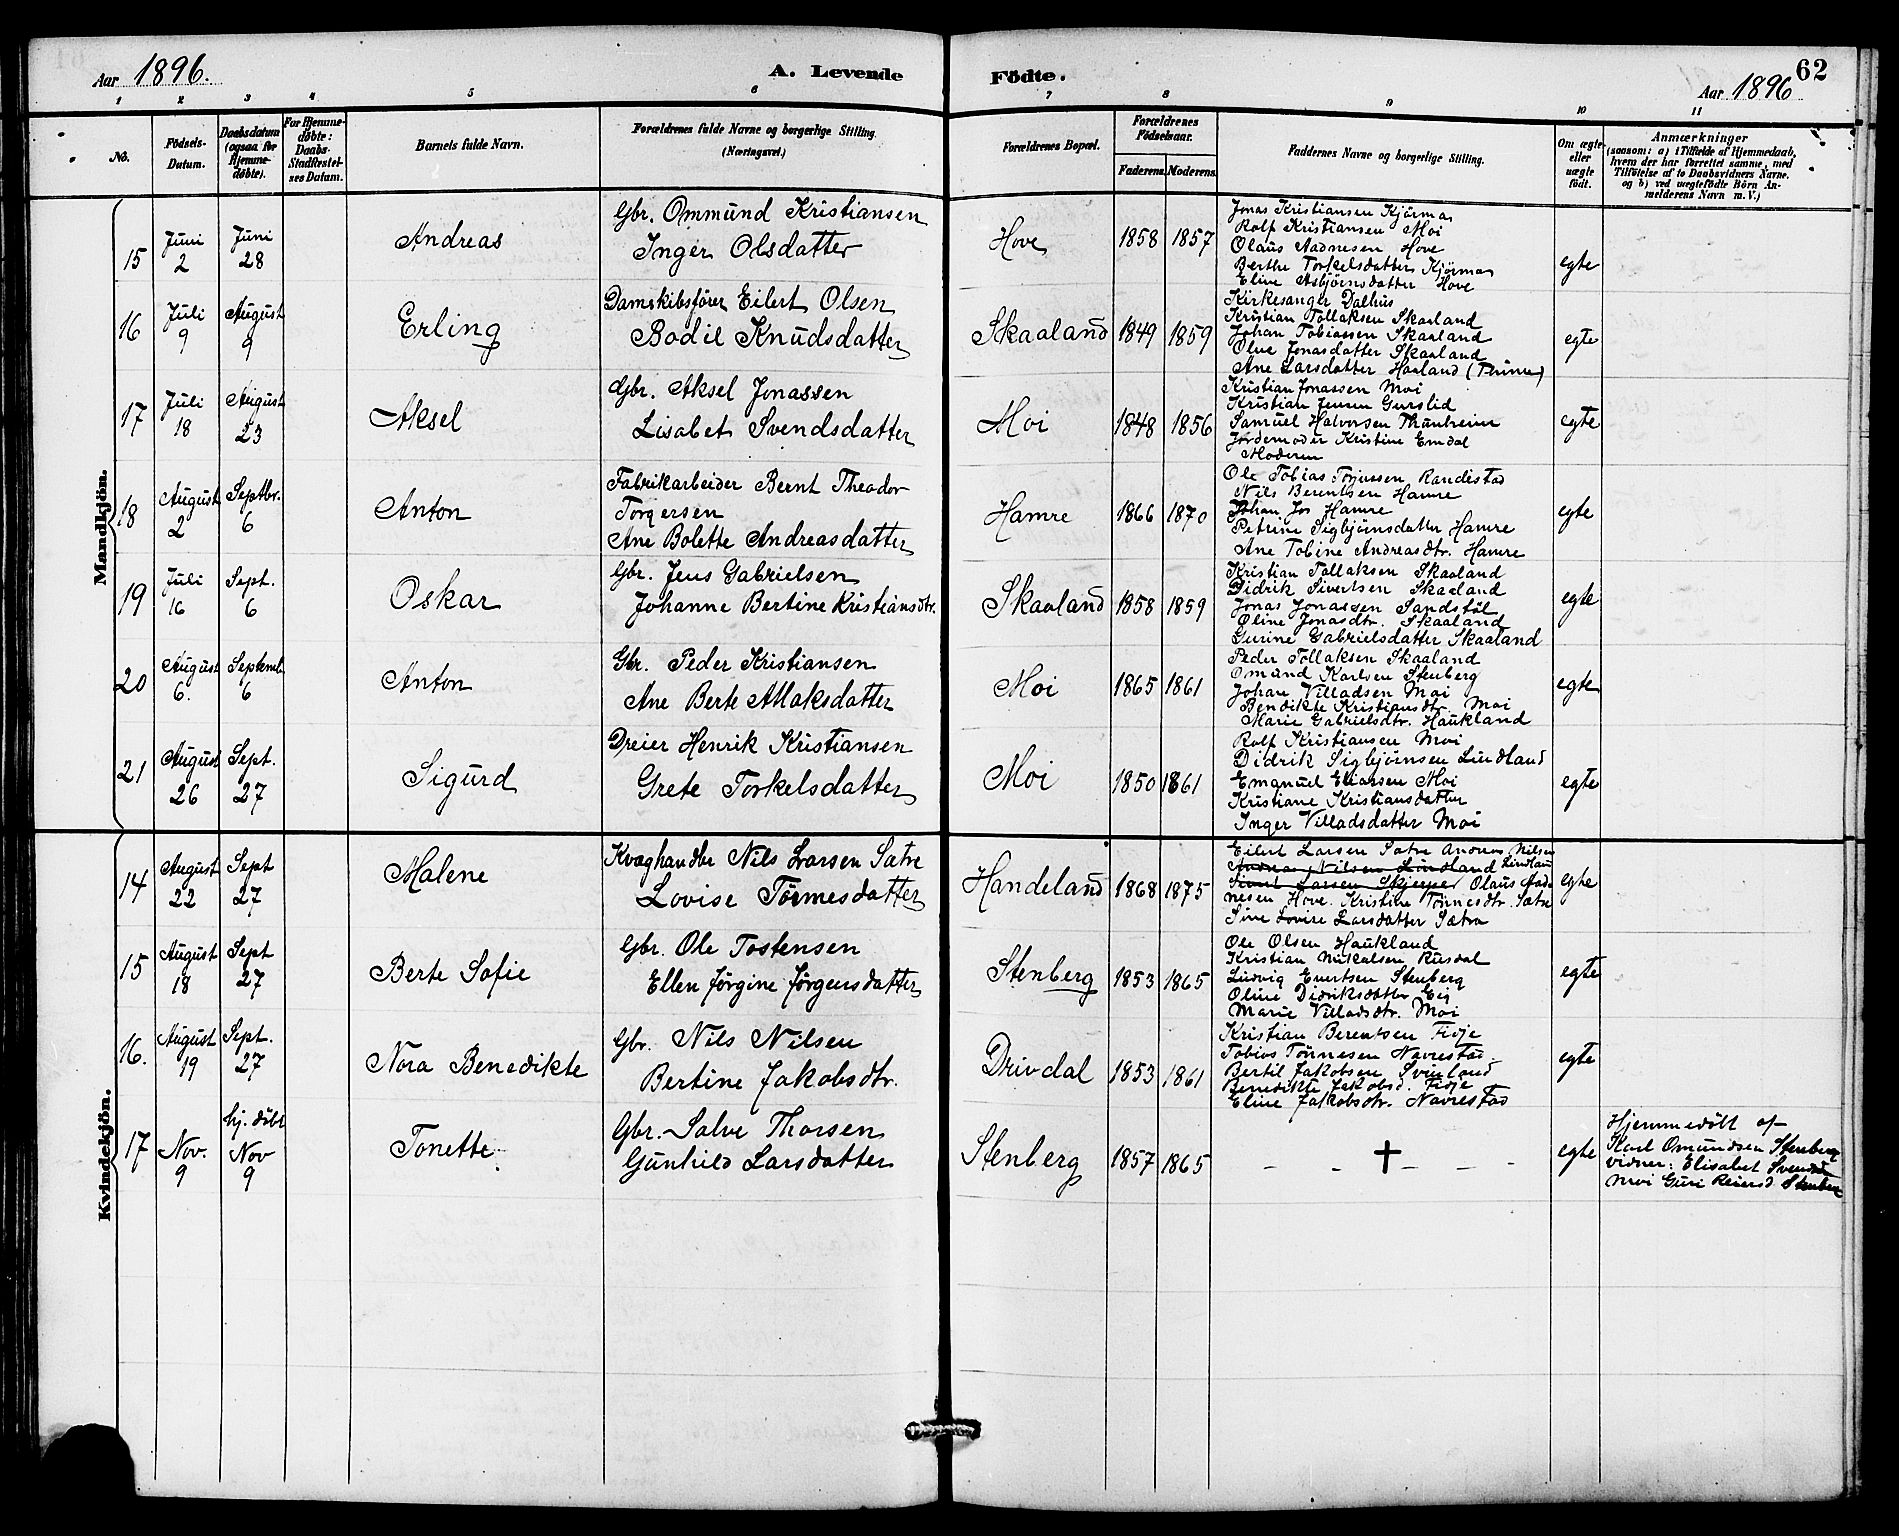 Aar 1896.
A. Levende
Födte.
Aar 1896
62
1 2 3 4 5 6 7 8 9 10 11
No.
Födsels-
Datum.
Daabsdatum
(ogsaa for
Hjemme-
døbte).
For Hjemme-
døbte:
Daabs-
Stadfæstel-
ses Datum.
Barnets fulde Navn.
Forældrenes fulde Navne og borgerlige Stilling.
(Næringsvei.)
Forældrenes Bopæl.
Forældrenes
Födselsaar.
Faderens. Moderens.
Faddernes Navne og borgerlige Stilling.
Om ægte
eller
uægte
født.
Anmærkninger
(saasom: a) i Tilfælde af Hjemmedaab,
hvem der har forrettet samme, med
Tilføielse af to Daabsvidners Navne.
og b) ved uægtefødte Börn An-
melderens Navn m.V.)
Mandkjön.
15
Juni
2
Juni
28
Andreas
Gbr. Ommund Kristiansen
Inger Olsdatter
Hove
1858 1857
Jonas Kristiansen Kjörmo
Rolf Kristiansen Moi
Olaus Aadnesen Hove
Berthe Torkelsdatter Kjørmo
Eline Asbjørnsdatter Hove
egte
16
Juli
9
August
9
Erling
Damskibsfører Eilert Olsen
Bodil Knudsdatter
Skaaland
1849 1859
Kirkesanger Dalhus
Kristian Tollaksen Skaaland
Johan Tobiassen Skaaland
Olive Jonasdatter Skaaland
Ane Larsdatter Haaland
egte
17
Juli
18
August
23
Aksel
Gbr. Aksel Jonassen
Lisabet Svendsdatter
Moi
1848 1856
Kristian Jonassen Moi
Kristian Jensen Gurslid
Samuel Halvorsen
Jordemoder Kristine Emdal
Moderen
egte
18
August
2
Septbr.
6
Anton
Fabrikarbeider Bernt Theodor
Torgersen
Ane Bolette Andreasdatter
Hamre
1866 1870
Ole Tobias Torjussen Randestad
Nils Berentsen Hamre
Johan Jos Hamre
Petrine Sigbjørnsdatter Hamre
Ane Tobine Andreasdtr. Hamre
egte
19
Juli
16
Sept.
6
Oskar
Gbr. Jens Gabrielsen
Johanne Bertine Kristiansdtr.
Skaaland
1858 1859
Kristian Tollaksen Skaaland
Didrik Sivertsen Skaaland
Jonas Jonassen Sandstöl
Oline Jonasdtr. Skaaland
Gurine Gabrielsdatter Skaaland
egte
20
August
6.
Septemb.
6
Anton
Gbr. Peder Kristiansen
Ane Berte Atlaksdatter
Moi
1865 1861
Peder Tollaksen Skaaland
Omund Karlsen Stenberg
Johan Villadsen Moi
Bendikte Kristiansdtr. Moi
Marie Gabrielsdtr. Haukland
egte
21
August
26
Sept.
27
Sigurd
Dreier Henrik Kristiansen
Grete Torkelsdatter
Moi
1850 1861
Rolf Kristiansen Moi
Didrik Sigbjørnsen Lindland
Emanuel Eliassen Moi
Kristiane Kristiansdatter
Inger Villadsdatter Moi
egte
Kvindekjön.
14
August
22
Sept
27
Malene
Kvæghandler Nils Larsen Sætre
Lovise Tönnesdatter
Handeland
1868 1875
Eilert Larsen Sætre Andreas Nilsen
Andreas Nilsen Lindland Lindland
Larsen Skjerpe Olaus Aad-
nesen Hove. Kristine Tönnesdtr. Sætre
Sine Lovise Larsdatter Sætra
egte
15
August
18
Sept
27
Berte Sofie
Gbr. Ole Tostensen
Ellen Jørgine Jørgensdatter
Stenberg
1853 1865
Ole Olsen Haukland
Kristian Mikalsen Rusdal
Ludvig Evertsen Stenberg
Oline Didriksdatter Eig
Marie Villadsdtr. Moi
egte
16.
August
19
Sept.
27
Nora Benedikte
Gbr. Nils Nilsen
Bertine Jakobsdtr.
Drivdal
1853 1861
Kristian Berentsen Fidje
Tobias Tönnesen Navrestad.
Bertil Jakobsen Svinland
Benedikte Jakobsd. Fidje
Eline Jakobsdtr. Navrestad
egte
17
Nov.
9
hj. döbt
Nov
9
Tonette
Gbr. Salve Thorsen
Gunhild Larsdatter
Stenberg
1857 1865
– – † – – –
egte
Hjemmedøbt af
Karl Omundsen Stenberg
vidner: Elisabet Svendsd
Moi Guri Reiersd. Stenber